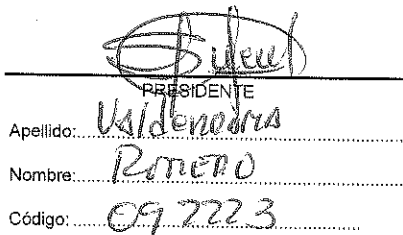 PRESIDENTE
Apellido: Valdenebro
Nombre: ROMERO
Código: 092223